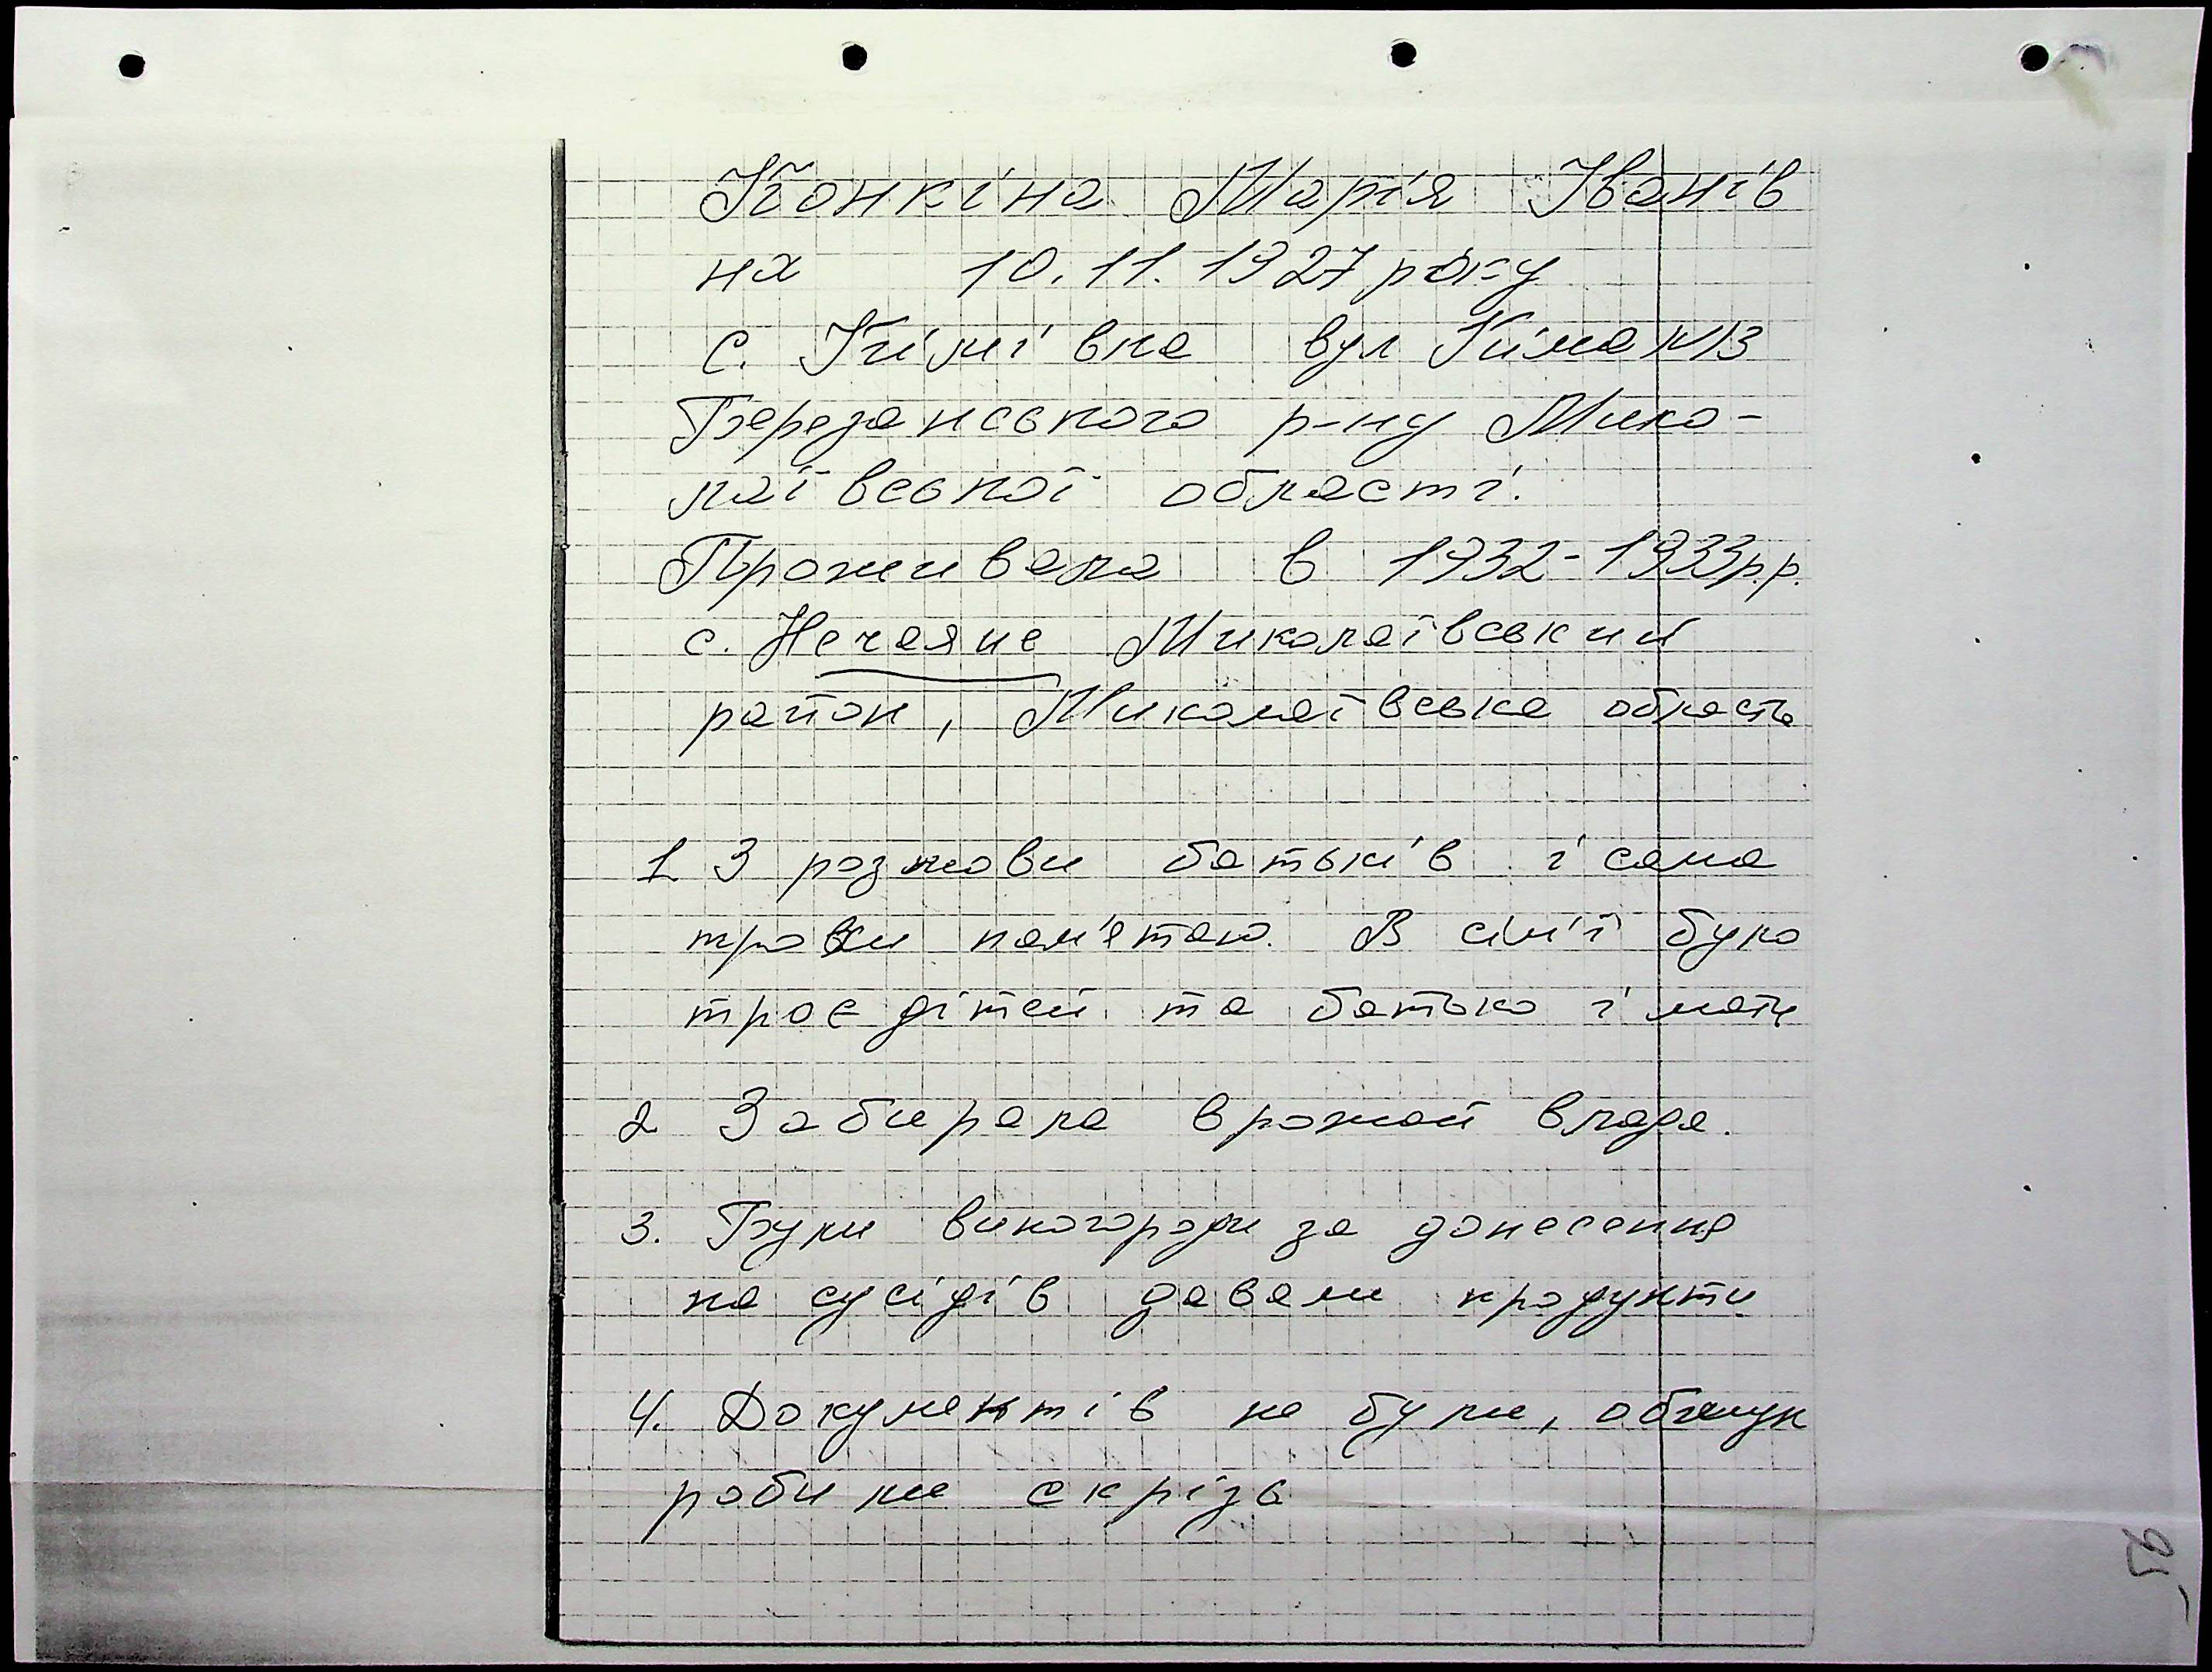 Конкіна Марія Іванів
на 10.11.1927 року
с. Кімівка вул Кіма №13
Березанського р-ну Мико-
лаївської області.
Проживала в 1932-1933р.р.
с. Нечаяне Миколаївський
район, Миколаївська область
1 З розмови батьків і сама
трохи пам'ятаю. В сім'ї було
троє дітей та батько і мати
2 Забирала врожай влада.
3. Були винагороди за донесення
на сусідів давали продукти
4. Документів не було, обшук
робили скрізь
95